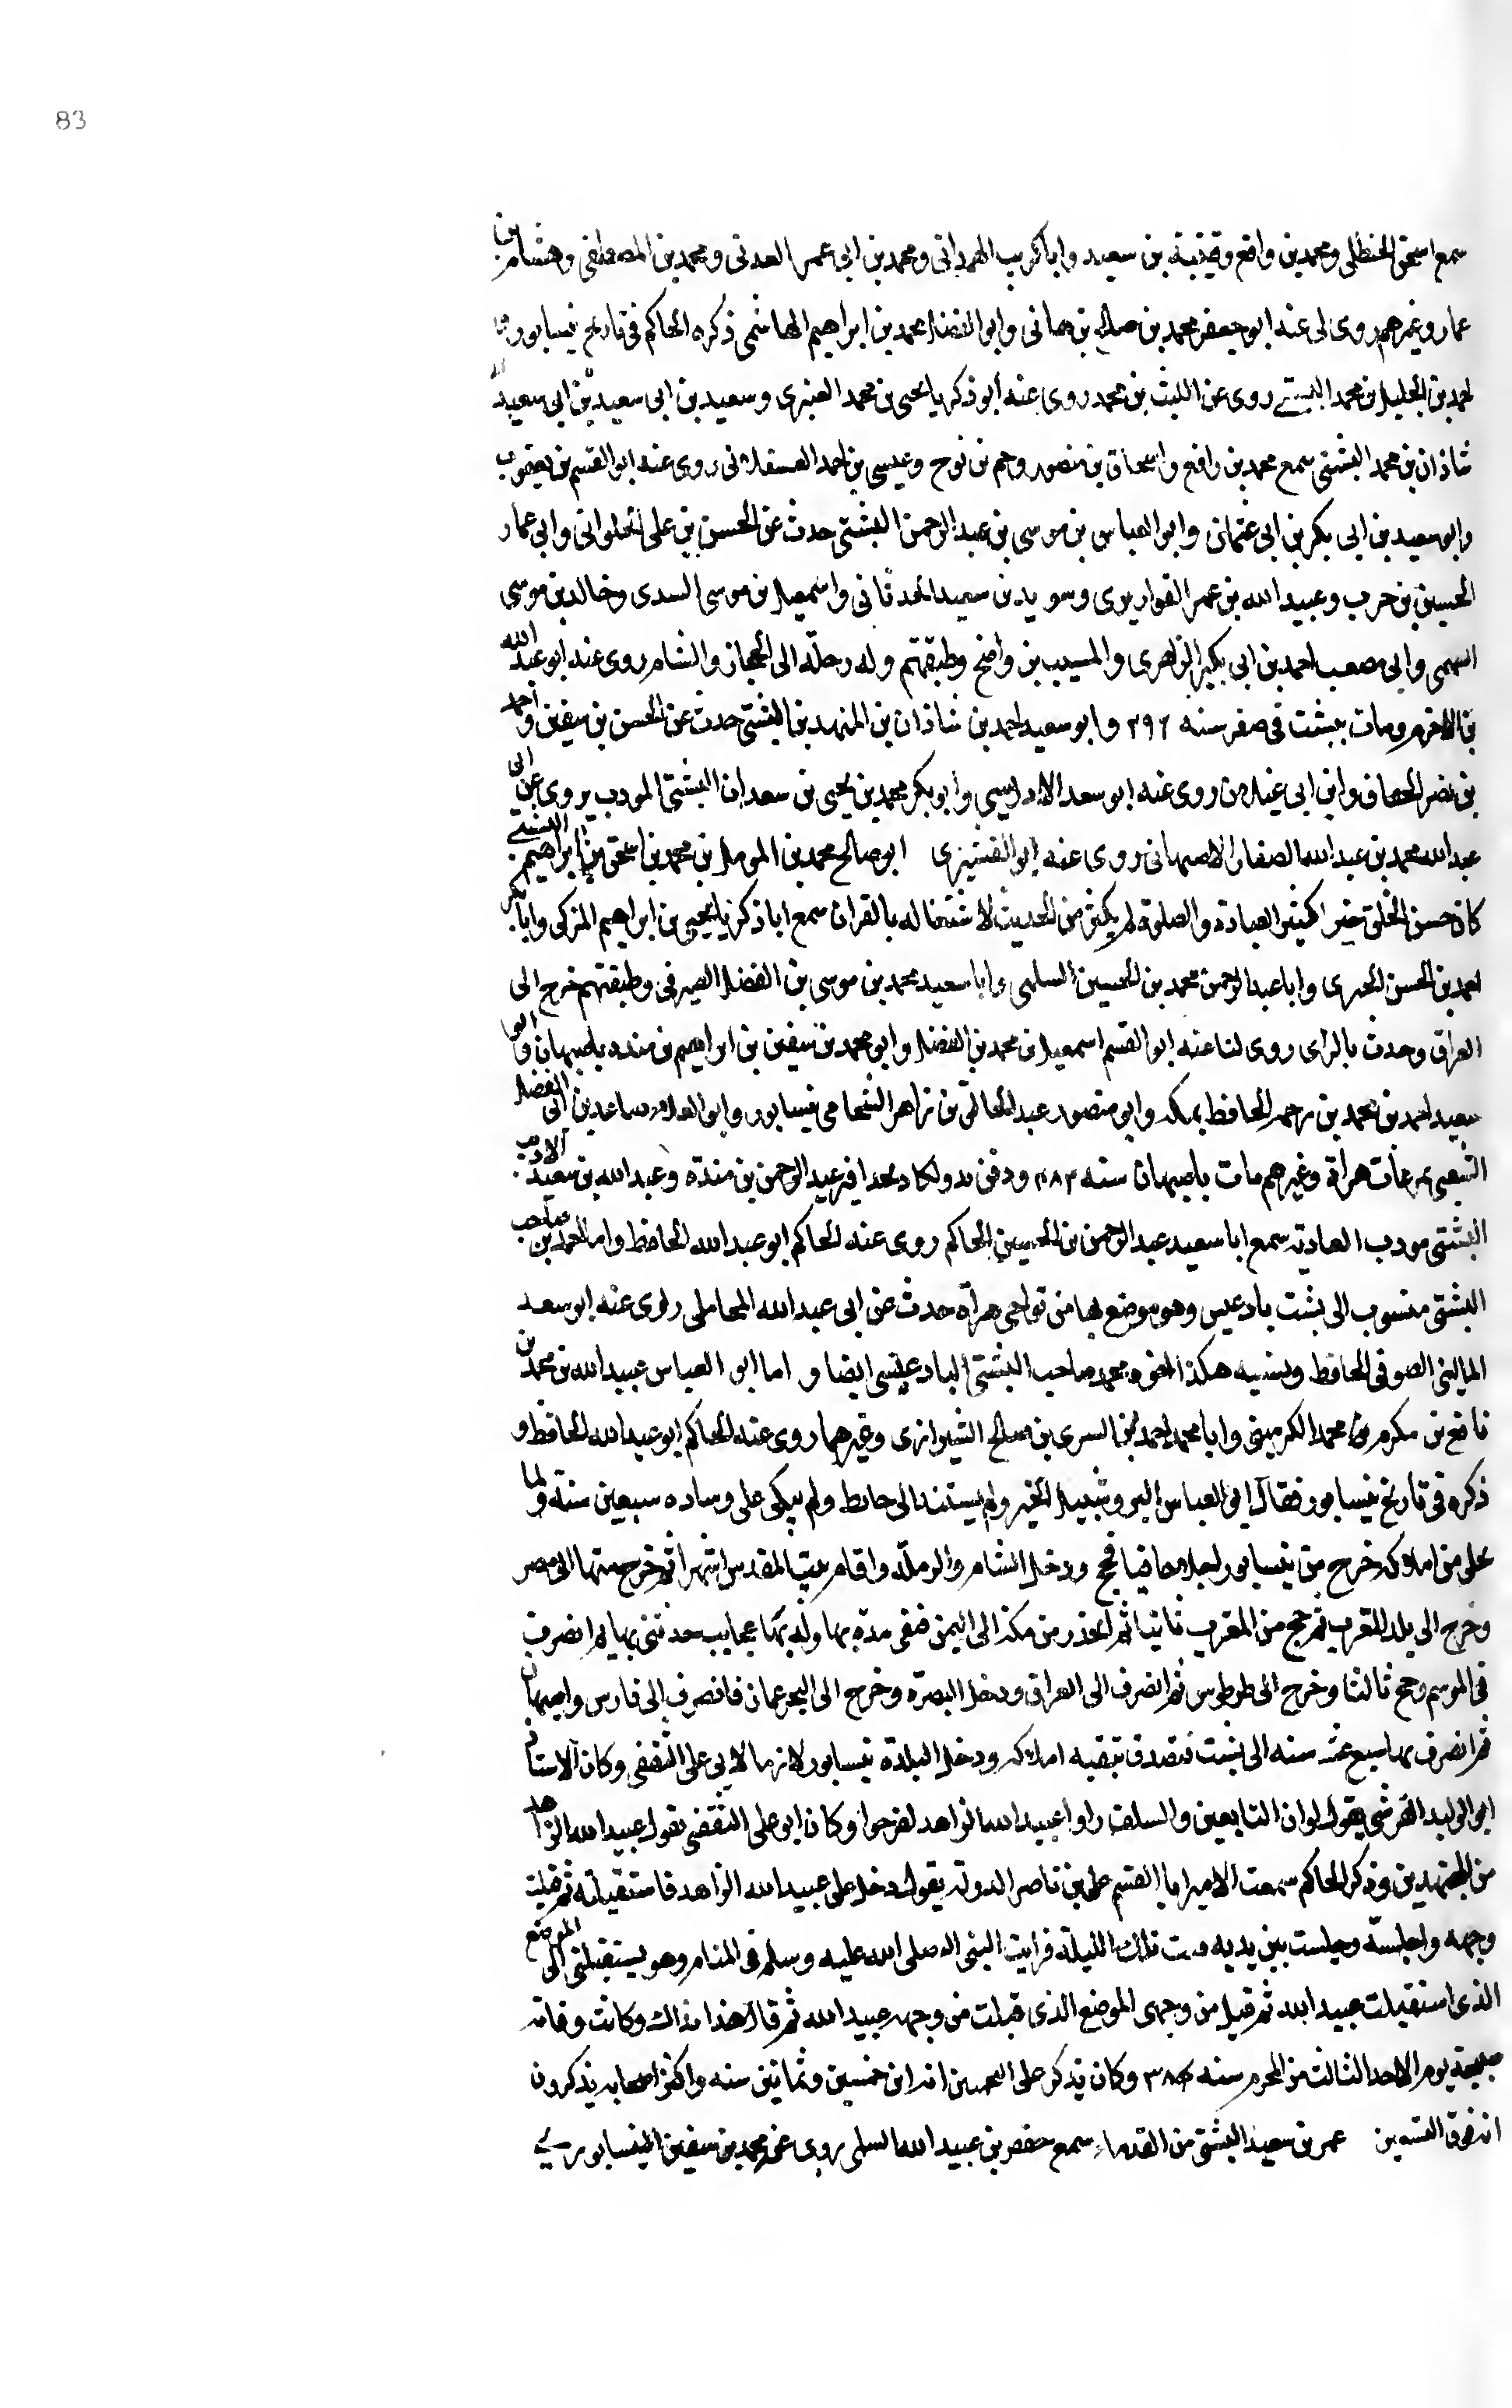 83
سمع اسحق الحنظلى ومحمد بن رافع وقتيبة بن سعيد وابا كريب الهمدانى ومحمد بن ابى عمر العدنى ومحمد بن المصطفى وهشام بن
عمار وغيرهم روى لى عنه ابو جعفر محمد بن صالح بن هانى وابو الفضل محمد بن ابراهيم الهاشمى ذكره الحاكم فى تاريخ نيسابور
احمد بن الخليل بن محمد البشتى روى عن الليث بن محمد روى عنه ابو زكريا يحيى بن محمد العنبرى وسعيد بن ابى سعيد بن ابى سعيد
شاذان بن محمد البشتى سمع محمد بن رافع واسحاق بن منصور وحم بن نوح وعيسى بن احمد العسقلانى روى عنه ابو القسم بن يعقوب
وابو سعيد بن ابى بكر بن ابى عثمان وابو العباس بن موسى بن عبد الرحمن البشتى حدث عن الحسن بن على الحلوانى وابى عمار
الحسين بن حرب وعبيد الله بن عمر القواريرى وسويد بن سعيد الحدثانى واسمعيل بن موسى السدى وخالد بن موسى
السهمى وابى مصعب احمد بن ابى بكير الزهرى والمسيب بن واضح وطبقتهم وله رحلة الى الحجاز والشام روى عنه ابو عبد الله
بن الاخرم ومات ببشت فى صفر سنه ٢٩٢ وابو سعيد احمد بن شاذان بن البشتى حدث عن الحسن بن سفين واحمد
بن نصر الخفاف وابن ابى غيلان روى عنه ابو سعد الادريسى وابو بكر محمد بن يحيى بن سعدان البشتى المودب يروى عن ابى
عبد الله محمد بن عبد الله الصفار الاصبهانى روى عنه ابو القشيرى ابو صالح محمد بن المومل بن محمد بن اسحق بن ابراهيم البشتى
كان حسن الخلق كثير العبادة والصلوة لم يكثر من الحديث لاشتغاله بالقران سمع ابا زكريا يحيى بن ابراهيم المزكى وابا بكر
احمد بن الحسن الحيرى وابا عبد الرحمن محمد بن الحسين السلمى وابا سعيد محمد بن موسى بن الفضل الصيرفى وطبقتهم خرج الى
العراق وحدث بالراى روى لنا عنه ابو القسم اسمعيل بن محمد بن الفضل وابو محمد بن سفين بن ابراهيم بن منده باصبهان وابو
سعيد احمد بن محمد بن الحافظ بمكه وابو منصور عبد الخالق بن زاهر الشحامى نيسابور وابو العلاء صاعد بن ابى الفضل
الشعيبى هراة وغيرهم مات باصبهان سنه ٤٨٣ ودفن عبد الرحمن بن مندة وعبد الله بن سعيد الاديب
البشتى مودب سمع ابا سعيد عبد الرحمن بن الحسين الحاكم روى عنه الحاكم ابو عبد الله الحافظ واما احمد بن صاحب
البشتى منسوب الى بشت بادغيس وهو موضع بها من نواحى هراة حدث عن ابى عبد الله المحاملى روى عنه ابو سعد
المالينى الصوفى الحافظ ونسبه هكذا اخوه محمد صاحب البشتى البادغيسى ايضا و اما ابو العباس عبيد الله بن محمد بن
نافع بن مكرم بن محمد الكرمينى وابا محمد احمد بن السرى بن صالح الشيرازى وغيرهما روى عنه الحاكم ابو عبد الله الحافظ و
ذكره فى تاريخ نيسابور فقال ابى العباس الخير ولم يستند الى حائط ولم يتكى على وساده سبعين سنة ولما
من املاكه خرج من نيسابور فحج ودخل الشام والرملة واقام ببيت المقدس اشهرا ثم خرج منها الى مصر
وخرج الى بلد المغرب ثم حج من المغرب ثانيا ثم انحدر من مكة الى اليمن فبقى مدة بها وله بها عجايب حدثنى بها ثم انصرف
فى الموسم وحج ثالثا وخرج الى طرطوس ثم انصرف الى العراق ودخل البصرة وخرج الى البحر عمان فانصرف الى فارس واصبهان
ثم انصرف سنه الى بشت فتصدق ببقية املاكه ودخل البلدة نيسابور لازما لابى على الثقفى وكان الاستاذ
ابو الوليد القرشى يقول لو ان التابعين والسلف راوا عبيد الله الزاهد لفرحوا وكان ابو على الثقفى يقول عبيد الله الزاهد
من المجتهدين وذكر الحاكم سمعت الامير ابا القسم على بن ناصر الدولة يقول دخل على عبيد الله الزاهد فاستقبلته ثم قبلت
وجهه واجلسته وجلست بين يديه تلك الليلة فرايت النبى صلى الله عليه وسلم فى المنام وهو يستقبلنى الى الموضع
الذى استقبلت عبيد الله ثم قبل من وجهى الموضع الذى قبلت من وجه عبيد الله ثم قال هذا بذاك وكانت وفاته
صبيحة يوم الاحد الثالث من المحرم سنه ٣٨٤ وكان يذكر على التخمين انه ابن خمسين وثمانين سنه واكثر اصحابه يذكرون
انه فوق التسعين عمر بن سعيد البشتى من القدماء سمع حفص بن عبيد الله السلمى روى عن محمد بن سفين النيسابورى